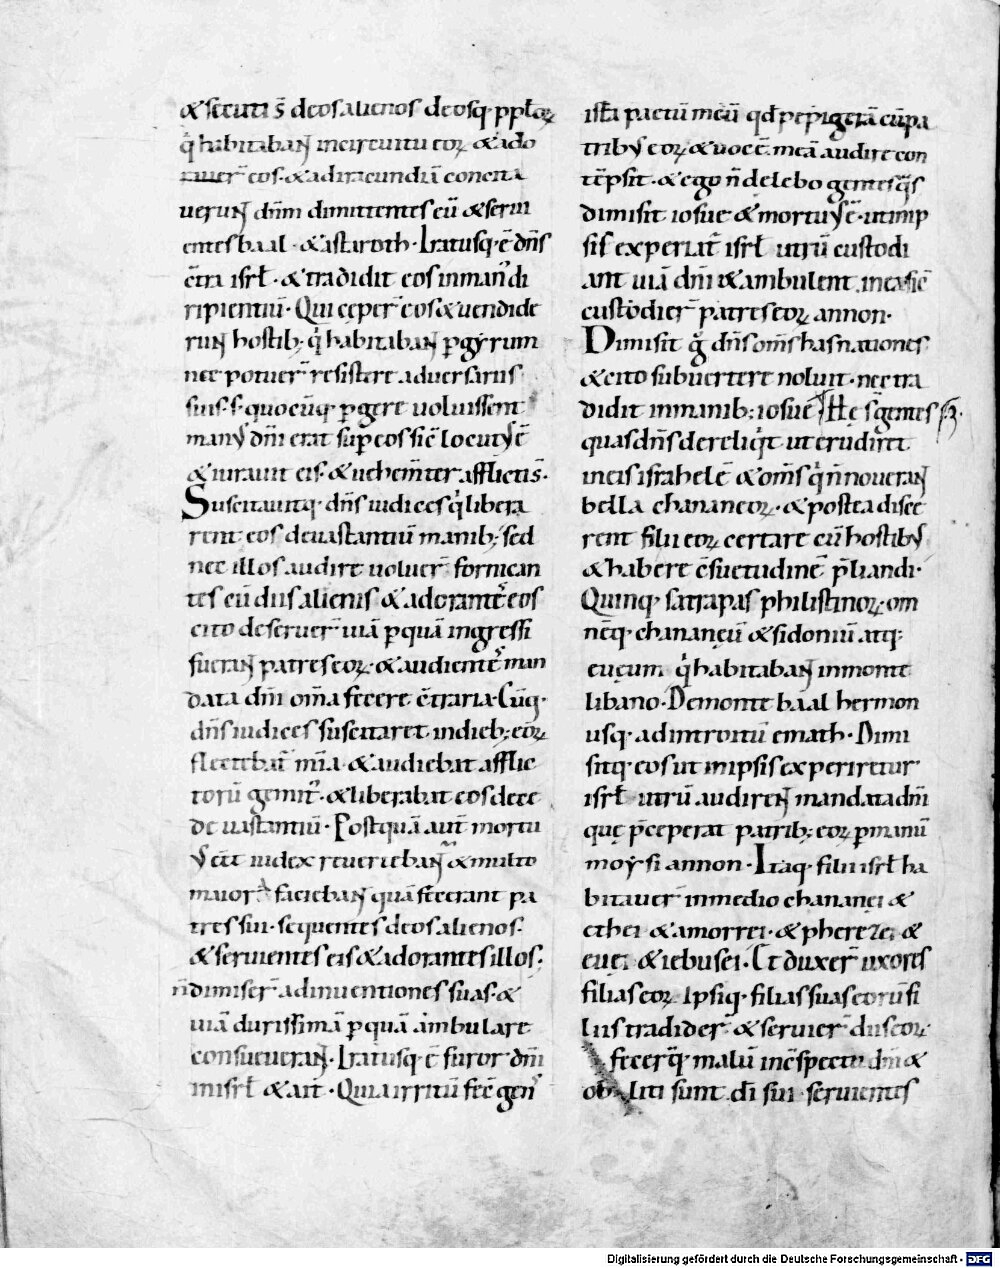 & secuti s̄ deos alienos deosq; pp̄loꝝ
q̇ habitabant in circuitu eoꝝ & ado
rauer̄ eos· & ad iracundiā concita
uerunt dn̄m dimittentes eū & serui
entes baal· & astaroth· Iratusq; ē dn̄s
c̄tra isrl̄· & tradidit eos in manꝰ di
ripientiū· Qui ceper̄ eos & uendide
runt hostib; q̇ habitabant ꝑ gyrum
nec potuer̄ resistere aduersariis
suis· s; quocūq; ꝑgere uoluissent
manꝰ dn̄i erat sup eos sic̄ locutꝰ ē
& iurauit eis· & uehem̄ter afflicti s̄·
Suscitauitq; dn̄s iudices q̇ libera
rent eos de uastantiū manib; sed
nec illos audire uoluer̄ fornican
tes cū diis alienis & adorantes eos
cito deseruer̄ uiā ꝑ quā ingressi
fuerant patres eoꝝ· & audientes man
data dn̄i om̄a fecere c̄traria· Cūq;
dn̄s iudices suscitaret· in dieb; eoꝝ
flectebat̄ mīa· & audiebat afflic
torū gemitꝰ· & liberabat eos de ce
de uastantiū· Postquā aut̄ mortu
ꝰ eēt iudex reuertebant̄ & multo
maiora faciebant quā fecerant pa
tres sui· sequentes deos alienos·
& seruientes eis & adorantes illos;
n̄ dimiser̄ adinuentiones suas· &
uiā durissimā ꝑ quā ambulare
consueuerant· Iratusq; ē furor dn̄i
in isrl̄ & ait· Quia irritū fec̄ gens
ista pactū meū qd̄ pepigerā cū pa
tribꝰ eoꝝ & uocē meā audire con
tēpsit· & ego n̄ delebo gentes q̄s
dimisit iosue & mortuꝰ ē· ut in ip
sis experiar̄ isrl̄ utrū custodi
ant uiā dn̄i & ambulent in ea sic̄
custodier̄ patres eoꝝ an non·
Dimisit g̊ dn̄s om̄s has nationes
& cito subuertere noluit· nec tra
didit in manib; iosue Hę s̄ gentes
quas dn̄s dereliq̇t ut erudiret
in eis israhelē & om̄s q̇ n̄ nouerant
bella chananeoꝝ· & postea disce
rent filii eoꝝ certare cū hostibꝰ
& habere c̄suetudinē p̄liandi·
Quinq; satrapas philistinoꝝ· om
nēq; chananęū & sidoniū atq;
euęum q̇ habitabant in monte
libano· De monte baal hermon
usq; ad introitū emath· Dimi
sitq; eos ut in ipsis experiretur
isrl̄ utrū audirent mandata dn̄i
quę p̄ceperat patrib; eoꝝ ꝑ manū
moysi an non· Itaq; filii isrl̄ ha
bitauer̄ in medio chananei &
ethei & amorrei· & pherezei &
euei & iebusei· Et duxer̄ uxores
filias eoꝝ ipsiq; filias suas eorū fi
liis tradider̄ & seruier̄ diis eoꝝ·
fecerq; malū in c̄spectu dn̄i &
obliti sunt di̅ sui· seruientes
Digitalisierung gefördert durch die Deutsche Forschungsgemeinschaft - DFG